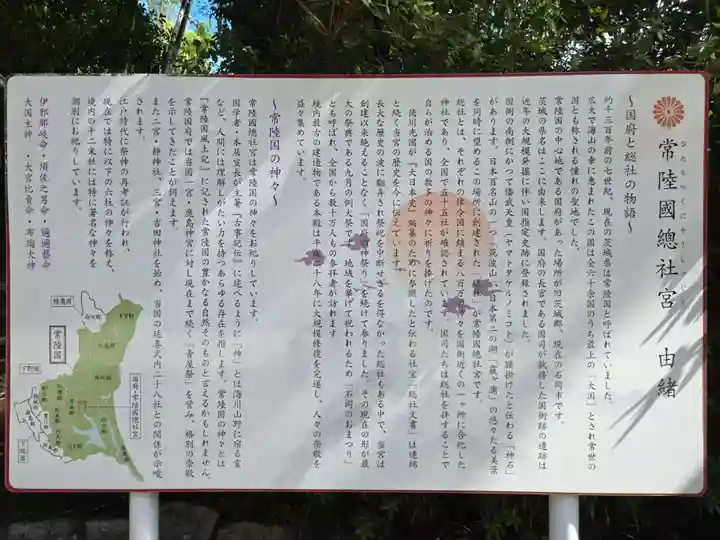 常陸國總社宮 由緒
ひたちのくにそうしゃぐう
〜国府と総社の物語〜
約千三百年前の七世紀、現在の茨城県は常陸国と呼ばれていました。
広大で海山の幸に恵まれたこの国は全六十余国のうち最上の「大国」とされ常世の
国とも称される憧れの聖地でした。
常陸国の中心地である国府があった場所が旧茨城郡、現在の石岡市です。
茨城の県名はここに由来します。国府の長官である国司が執務した国衙跡の遺跡は
近年の大規模発掘に伴い国指定史跡に登録されました。
国衙の南側にかつて倭武天皇（ヤマトタケルノミコト）が腰掛けたと伝わる「神石」
があります。日本百名山の一つ「筑波山」、日本第二の湖「霞ヶ浦」の悠々たる美景
を同時に望めるこの場所に創建された「總社」が常陸國總社宮です。
総社とは、それぞれの律令国に鎮まる八百万の神々を国衙近くの一ヶ所に合祀した
神社であり、全国で五十五社が確認されています。国司たちは総社を拝することで
自らが治める国の数多の神々に祈りを捧げたのです。
徳川光圀が『大日本史』編纂のために参照したと伝わる社宝「総社文書」は連綿
と続く当宮の歴史を今に伝えています。
長大な歴史の波に翻弄され祭祀を中断せざるを得なかった総社もある中で、当宮は
創建以来絶えることなく「国府の神祭り」を続けて参りました。その現在の形が最
大の祭典である九月の例大祭です。地域を挙げて祝われるため「石岡のおまつり」
とも呼ばれ、全国から数十万人もの参拝者が訪れます。
境内最古の建造物である本殿は平成二十八年に大規模修復を完遂し、人々の崇敬を
益々集めています。
〜常陸国の神々〜
常陸國總社宮は常陸国の神々をお祀りしています。
国学者・本居宣長が主著『古事記伝』に述べるように「神」とは海川山野に宿る霊
など、人間には理解しがたい力を持つあらゆる存在を指します。常陸国の神々とは
『常陸国風土記』に記された常陸国の豊かなる自然そのものと言えるかもしれません。
常陸国府では当国一宮・鹿島神宮に対し現在まで続く「青屋祭」を営み、格別の崇敬
を示してきたことが伺えます。
また二宮・静神社、三宮・吉田神社を始め、当国の延喜式内二十八社との関係が示唆
されます。
江戸時代に祭神の再考証が行われ、
現在では特に以下の六柱の神々を称え、
境内の十二末社には特に著名な神々を
個別にお祀りしています。
伊弉諾岐命・須佐之男命・邇邇藝命
大国主神・大宮比賣命・布瑠大神
陸奥国
常陸国
下野国
下総国
国府・常陸國總社宮